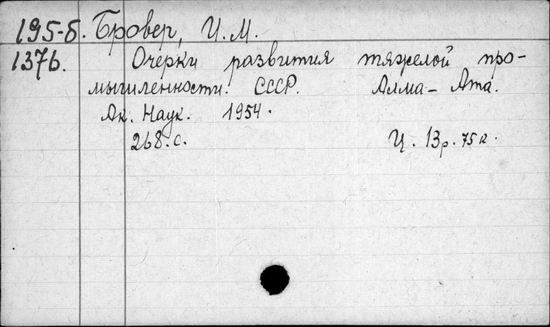 195-б. Бровер, И.М.
1376. Очерки развития тяжелой про-
мышленности. СССР. Алма-Ата.
Ак. Наук. 1954.
268.с. Ц. 13р.75к.